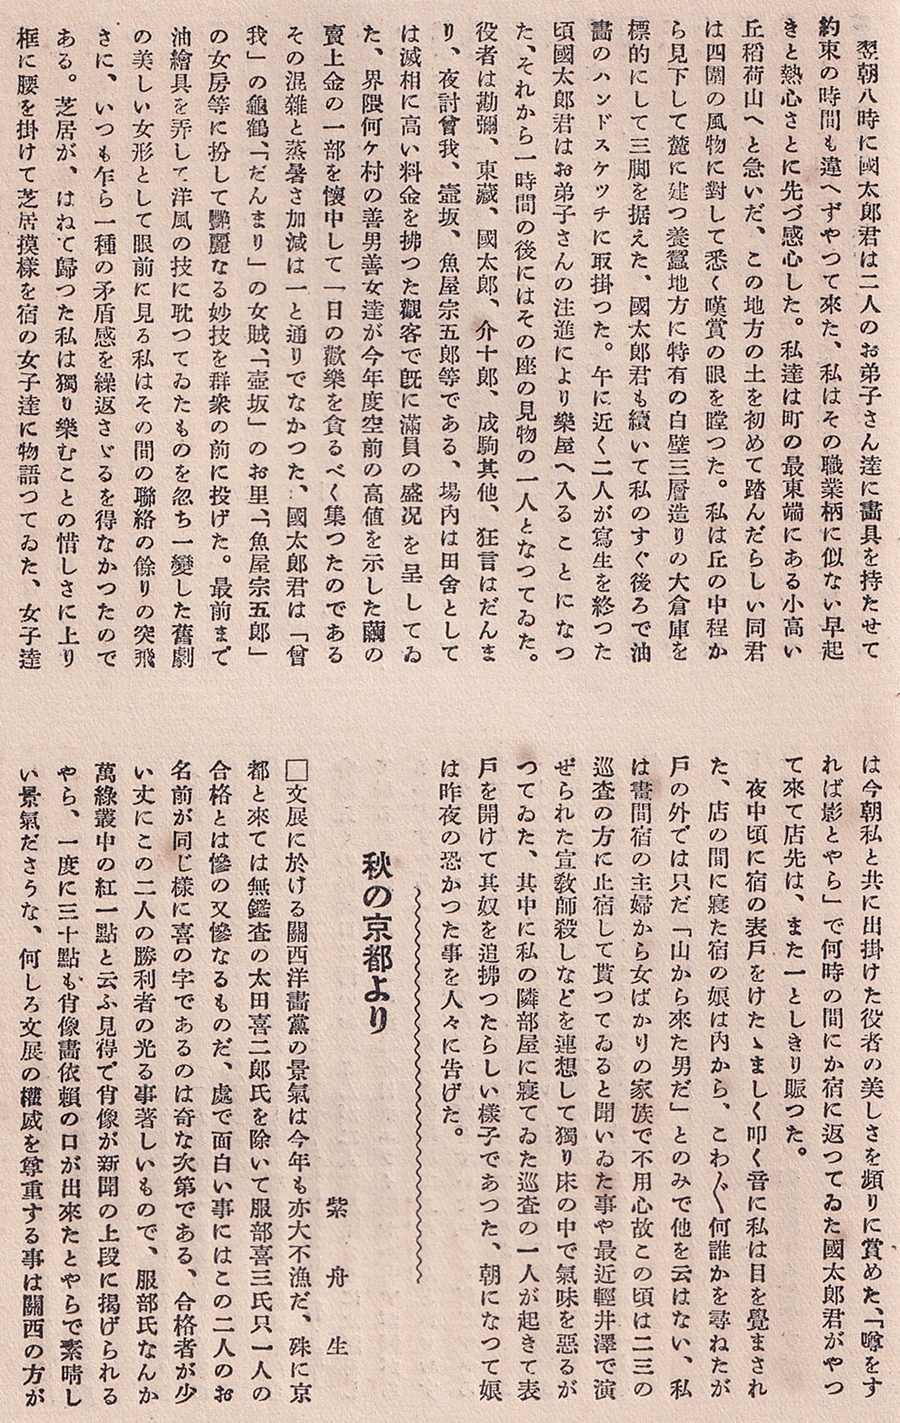 翌朝八時に國太郎君は二人のお弟子さん達に畵具を持たせて
約東の時間も違へずやつて來た、私はその職業柄に似ない早起
きと熱心さとに先づ感心した。私達は町の最東端にある小高い
丘稻荷山へと急いだ、この地方の土を初めて踏んだらしい同君
は四圍の風物に對して悉く嘆賞の眼を瞠つた。私は丘の中程か
ら見下して麓に建つ養蠶地方に特有の白壁三層造りの大倉庫を
標的にして三脚を据えた、國太郎君も續いて私のすぐ後ろで油
畵のハンドスケツチに取掛つた。午に近く二人が寫生を終つた
頃國太郎君はお弟子さんの注進により樂屋へ入ることになつ
た、それから一時間の後にはその座の見物の一人となつてゐた。
役者は勘彌、東藏、國太郎、介十郎、成駒其他、狂言はだんま
り、夜討曾我、壼坂、魚屋宗五郎等である、場内は田舍として
は滅相に高い料金を拂つた觀客で既に滿員の盛况を呈してゐ
た、界隈何ケ村の善男善女達が今年度空前の高値を示した繭の
賣上金の一部を懷中して一日の歡樂を貪るべく集つたのである
その混雜と蒸暑さ加減は一と通りでなかつた、國太郎君は「曾
我」の龜鶴、「だんまり」の女賊、「壼坂」のお里、「魚屋宗五郎」
の女房等に扮して艷麗なる妙技を群衆の前に投げた。最前まで
油繪具を弄して洋風の技に耽つてゐたものを忽ち一變した舊劇
の美しい女形として眼前に見る私はその間の聯絡の餘りの突飛
さに、いつも乍ら一種の矛盾感を繰返さゞるを得なかつたので
ある。芝居が、はねて歸つた私は獨り樂むことの惜しさに上り
框に腰を掛けて芝居摸樣を宿の女子達に物語つてゐた、女子達
は今朝私と共に出掛けた役者の美しさを頻りに賞めた、「噂をす
れば影とやら」で何時の間にか宿に返つてゐた國太郎君がやつ
て來て店先は、また一としきり賑つた。
夜中頃に宿の表戸をけたゝましく叩く音に私は目を覺まされ
た、店の間に寢た宿の娘は内から、こわ〴〵何誰かを尋ねたが
戸の外では只だ「山から來た男だ」とのみで他を云はない、私
は晝間宿の主婦から女ばかりの家族で不用心故この頃は二三の
巡査の方に止宿して貰つてゐると聞いゐた事や最近輕井澤で演
ぜられた宣敎師殺しなどを連想して獨り床の中で氣味を惡るが
つてゐた、其中に私の隣部屋に寢てゐた巡査の一人が起きて表
戸を開けて其奴を追拂つたらしい樣子であつた、朝になつて娘
は昨夜の恐かつた事を人々に告げた。
秋の京都より
紫舟生
□文展に於ける關西洋畵黨の景氣は今年も亦大不漁だ、殊に京
都と來ては無鑑査の太田喜二郎氏を除いて服部喜三氏只一人の
合格とは慘の又慘なるものだ、處で面白い事にはこの二人のお
名前が同じ樣に喜の字であるのは奇な次第である、合格者が少
い丈にこの二人の勝利者の光る事著しいもので、服部氏なんか
萬綠叢中の紅一點と云ふ見得で肖像が新聞の上段に揭げられる
やら、一度に三十點も肖像畵依賴の口が出來たとやらで素晴し
い景氣ださうな、何しろ文展の權威を尊重する事は關西の方が